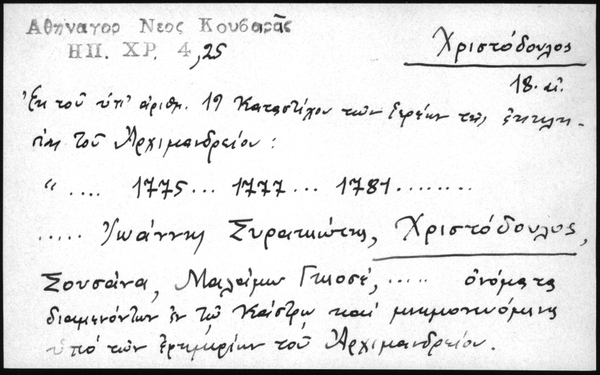 Αθηναγορ Νεος Κουβαρᾶς
ΗΠ. ΧΡ. 4,25
Χριστόδουλος
18. αἰ.
Ἐκ τοῦ ὑπ' ἀριθμ. 19 Καταστίχου τῶν ἱερέων τῆς ἐκκλη-
σίας τοῦ Ἀρχιμανδρείου :
" .... 1775 ... 1777 ... 1781 ........
..... Ἰωάννης Συρακιώτης, Χριστόδουλος,
Σουσάνα, Μαλάμω Γκιοσέ, ..... ὀνόματα
διαμενόντων ἐν τῷ Κάστρῳ καί μνημονευόμενα
ὑπό τῶν ἐφημερίων τοῦ Ἀρχιμανδρείου.